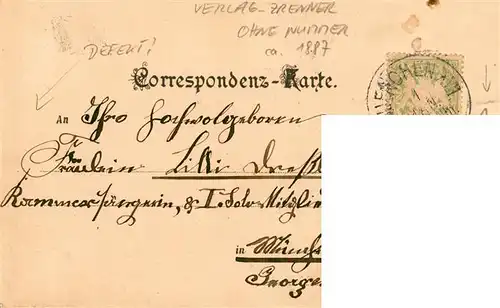 VERLAG-ZRENNER
OHNE NUMMER
ca. 1887
DEFEKT!
Correspondenz-Karte.
An Ihro Hochwolgeboren
Fräulein Lilli Dreßl
Kammersängerin, & I. Solo Mitglie
in Münche
George